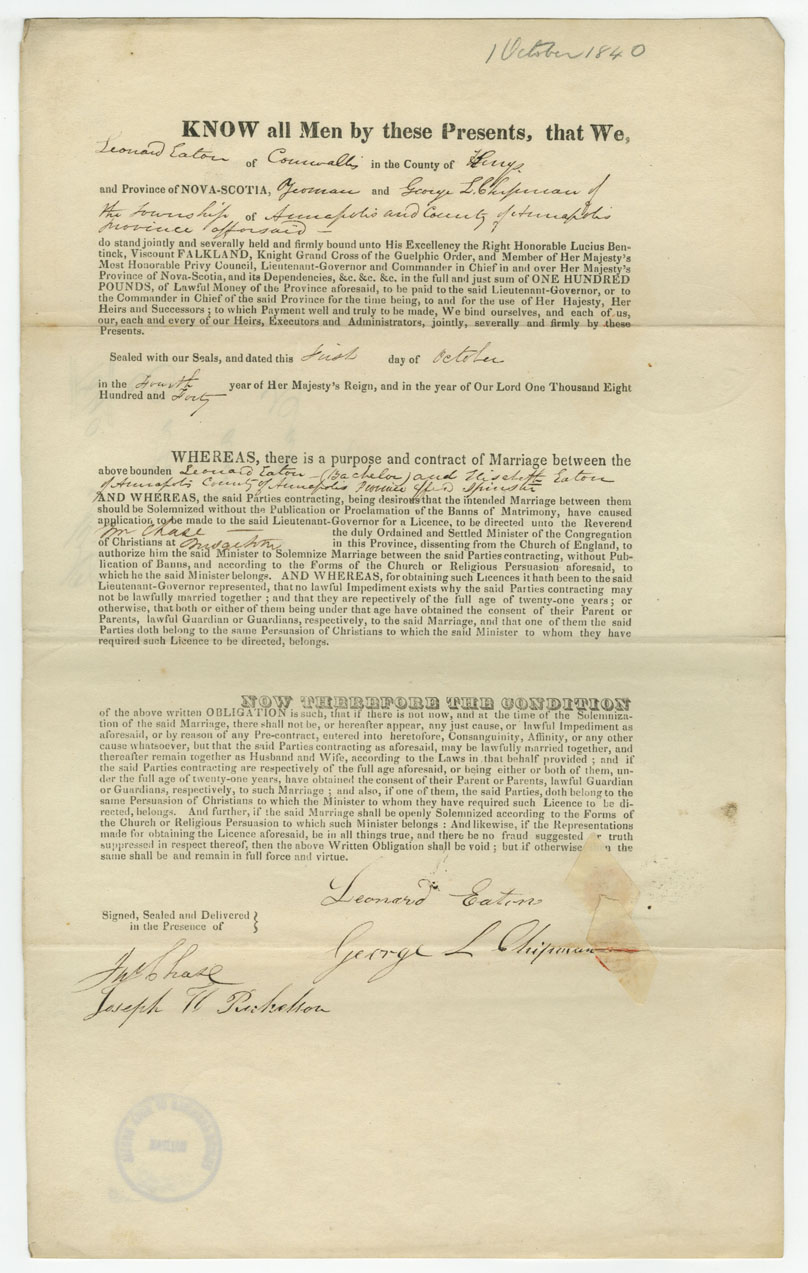 1 October 1840
KNOW all Men by these Presents, that We,
Leonard Eaton of Cornwallis in the County of Kings
and Province of NOVA-SCOTIA, Yeoman and George L. Chipman of
the Township of Annapolis and County of Annapolis
Province afforsaid —
do stand jointly and severally held and firmly bound unto His Excellency the Right Honorable Lucius Ben-
tinck, Viscount FALKLAND, Knight Grand Cross of the Guelphic Order, and Member of Her Majesty's
Most Honorable Privy Council, Lieutenant-Governor and Commander in Chief in and over Her Majesty's
Province of Nova-Scotia, and its Dependencies, &c. &c. &c. in the full and just sum of ONE HUNDRED
POUNDS, of Lawful Money of the Province aforesaid, to be paid to the said Lieutenant-Governor, or to
the Commander in Chief of the said Province for the time being, to and for the use of Her Hajesty, Her
Heirs and Successors; to which Payment well and truly to be made, We bind ourselves, and each of us,
our, each and every of our Heirs, Executors and Administrators, jointly, severally and firmly by these
Presents.
Sealed with our Seals, and dated this First day of October
in the Fourth year of Her Majesty's Reign, and in the year of Our Lord One Thousand Eight
Hundred and Forty
WHEREAS, there is a purpose and contract of Marriage between the
above bounden Leonard Eaton – (Bachelor) and Eaton
of Annapolis County of Annapolis Spinster
AND WHEREAS, the said Parties contracting, being desirous that the intended Marriage between them
should be Solemnized without the Publication or Proclamation of the Banns of Matrimony, have caused
application to be made to the said Lieutenant-Governor for a Licence, to be directed unto the Reverend
Chase — the duly Ordained and Settled Minister of the Congregation
of Christians at in this Province, dissenting from the Church of England, to
authorize him the said Minister to Solemnize Marriage between the said Parties contracting, without Pub-
lication of Banns, and according to the Forms of the Church or Religious Persuasion aforesaid, to
which he the said Minister belongs. AND WHEREAS, for obtaining such Licences it hath been to the said
Lieutenant-Governor represented, that no lawful Impediment exists why the said Parties contracting may
not be lawfully married together; and that they are repectively of the full age of twenty-one years; or
otherwise, that both or either of them being under that age have obtained the consent of their Parent or
Parents, lawful Guardian or Guardians, respectively, to the said Marriage, and that one of them the said
Parties doth belong to the same Persuasion of Christians to which the said Minister to whom they have
required such Licence to be directed, belongs.
NOW THEREFORE THE CONDITION
of the above written OBLIGATION is such, that if there is not now, and at the time of the Solemniza-
tion of the said Marriage, there shall not be, or hereafter appear, any just cause, or lawful Impediment as
aforesaid, or by reason of any Pre-contract, entered into heretofore, Consanguinity, Affinity, or any other
cause whatsoever, but that the said Parties contracting as aforesaid, may be lawfully married together, and
thereafter remain together as Husband and Wife, according to the Laws in that behalf provided; and if
the said Parties contracting are respectively of the full age aforesaid, or being either or both of them, un-
der the full age of twenty-one years, have obtained the consent of their Parent or Parents, lawful Guardian
or Guardians, respectively, to such Marriage; and also, if one of them, the said Parties, doth belong to the
same Persuasion of Christians to which the Minister to whom they have required such Licence to be di-
rected, belongs. And further, if the said Marriage shall be openly Solemnized according to the Forms of
the Church or Religious Persuasion to which such Minister belongs: And likewise, if the Representations
made for obtaining the Licence aforesaid, be in all things true, and there be no fraud suggested or truth
suppressed in respect thereof, then the above Written Obligation shall be void; but if otherwise n the
same shall be and remain in full force and virtue.
Leonard Eaton
Signed, Sealed and Delivered }
in the Presence of
George L Chipman
Chase
Joseph